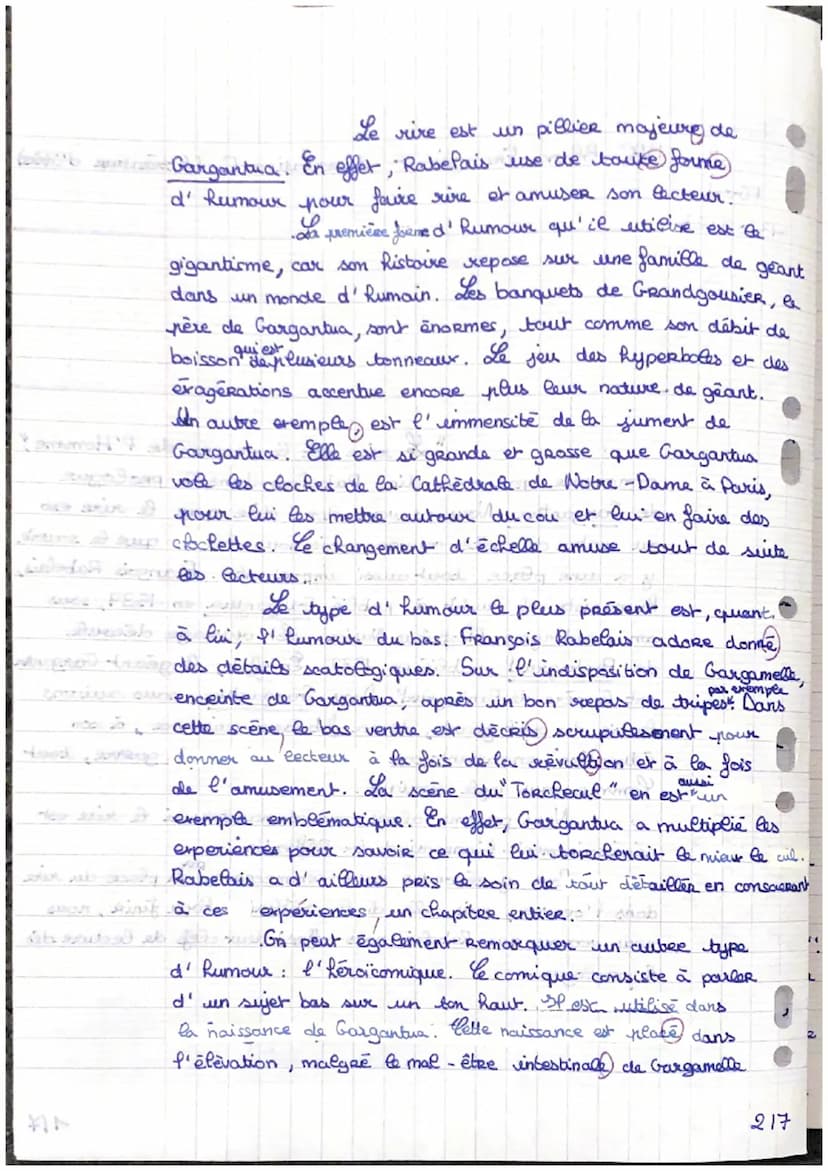 Le rire est un pillier majeure de
Gargantua. En effet, Rabelais use de toute forme
d'humour pour faire rire et amuser son lecteur.
La première forme d'humour qu'il utilise est le
gigantisme, car son histoire repose sur une famille de géant
dans un monde d'humain. Les banquets de Grandgousier, le
père de Gargantua, sont énormes, tout comme son débit de
boisson qui est de plusieurs tonneaux. Le jeu des hyperboles et des
exagérations accentue encore plus leur nature de géant.
Un autre exemple, est l'immensité de la jument de
Gargantua. Elle est si grande et grosse que Gargantua
vole les cloches de la Cathédrale de Notre-Dame à Paris,
pour lui les mettre autour du cou et lui en faire des
clochettes. Le changement d'échelle amuse tout de suite
les lecteurs.
Le type d'humour le plus présent est, quant
à lui, l'humour du bas. François Rabelais adore donné
des détails scatologiques. Sur l'indisposition de Gargamelle,
enceinte de Gargantua, après un bon repas de tripes par exemple. Dans
cette scène, le bas ventre est décris scrupulesement pour
donner au lecteur à la fois de la révultion et à la fois
de l'amusement. La scène du "Torchecul" en est aussi un
exemple emblématique. En effet, Gargantua a multiplié les
expériences pour savoir ce qui lui torcherait le mieux le cul.
Rabelais a d'ailleurs pris le soin de tout détailler en consacrant
à ces expériences un chapitre entier.
On peut également remarquer un autre type
d'humour : l'héroïcomique. Le comique consiste à parler
d'un sujet bas sur un ton haut. Il est utilisé dans
la naissance de Gargantua. Cette naissance est placé dans
l'élévation, malgré le mal-être intestinale de Gargamelle
2/7